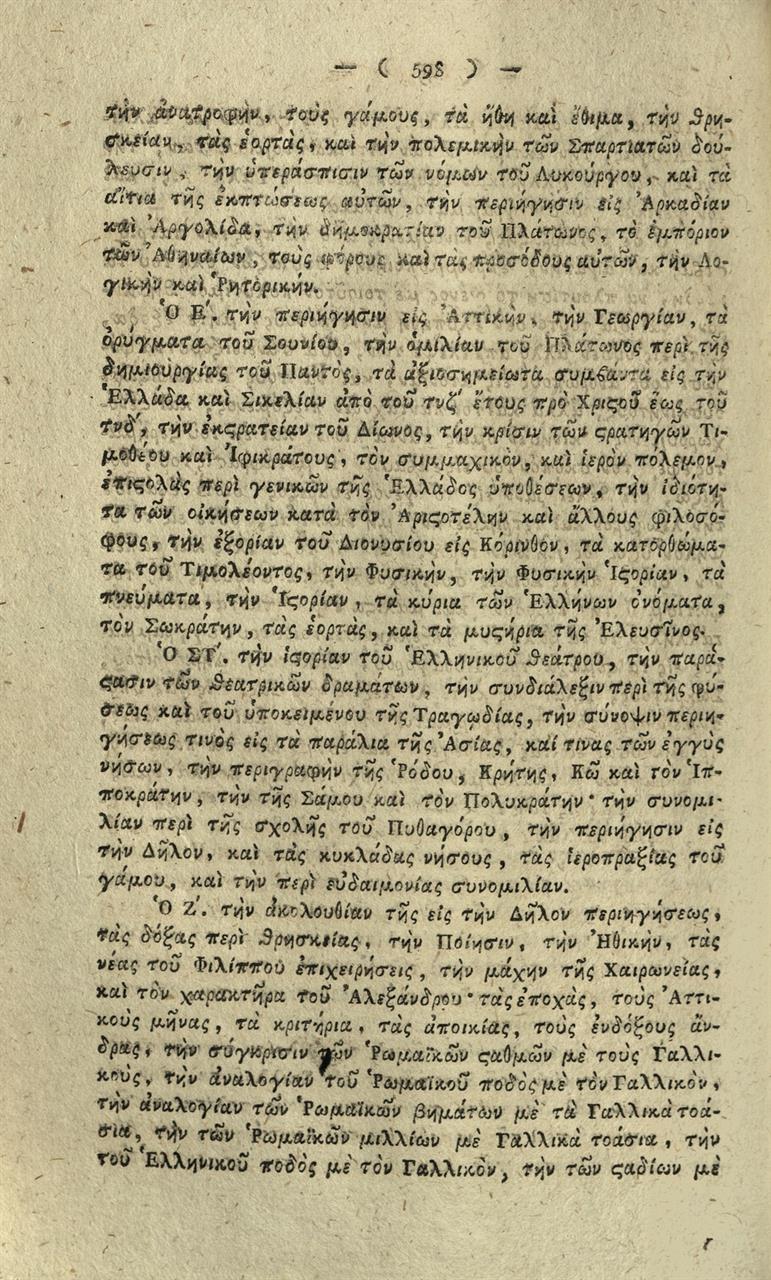 — ( 598 ) —
τὴν ἀνατροφὴν, τοὺς γάμους, τὰ ἤθη καὶ ἔθιμα, τὴν θρη-
σκείαν, τὰς ἑορτὰς, καὶ τὴν πολεμικὴν τῶν Σπαρτιατῶν δού-
λευσιν, τὴν ὑπεράσπισιν τῶν νόμων τοῦ Λυκούργου, καὶ τὰ
αἴτια τῆς ἐκπτώσεως αὐτῶν, τὴν περιήγησιν εἰς Ἀρκαδίαν
καὶ Ἀργολίδα, τὴν δημοκρατίαν τοῦ Πλάτωνος, τὸ ἐμπόριον
τῶν Ἀθηναίων, τοὺς φόρους καὶ τὰς προσόδους αὐτῶν, τὴν Λο-
γικὴν καὶ Ῥητορικήν.
Ὁ Ε΄. τὴν περιήγησιν εἰς Ἀττικὴν, τὴν Γεωργίαν, τὰ
ὀρύγματα τοῦ Σουνίου, τὴν ὁμιλίαν τοῦ Πλάτωνος περὶ τῆς
δημιουργίας τοῦ Παντὸς, τὰ ἀξιοσημείωτα συμβάντα εἰς τὴν
Ἑλλάδα καὶ Σικελίαν ἀπὸ τοῦ τνζ΄ ἔτους πρὸ Χριϛοῦ ἕως τοῦ
τνδ΄, τὴν ἐκϛρατείαν τοῦ Δίωνος, τὴν κρίσιν τῶν ϛρατηγῶν Τι-
μοθέου καὶ Ἰφικράτους, τὸν συμμαχικὸν, καὶ ἱερὸν πόλεμον,
ἐπιϛολὰς περὶ γενικῶν τῆς Ἑλλάδος ὑποθέσεων, τὴν ἰδιότη-
τα τῶν οἰκήσεων κατὰ τὸν Ἀριϛοτέλην καὶ ἄλλους φιλοσό-
φους, τὴν ἐξορίαν τοῦ Διονυσίου εἰς Κόρινθον, τὰ κατορθώμα-
τα τοῦ Τιμολέοντος, τὴν Φυσικὴν, τὴν Φυσικὴν Ἱϛορίαν, τὰ
πνεύματα, τὴν Ἱϛορίαν, τὰ κύρια τῶν Ἑλλήνων ὀνόματα,
τὸν Σωκράτην, τὰς ἑορτὰς, καὶ τὰ μυϛήρια τῆς Ἐλευσῖνος.
Ὁ ΣΤ΄. τὴν ἱϛορίαν τοῦ Ἑλληνικοῦ θεάτρου, τὴν παρά-
ϛασιν τῶν θεατρικῶν δραμάτων, τὴν συνδιάλεξιν περὶ τῆς φύ-
σεως καὶ τοῦ ὑποκειμένου τῆς Τραγῳδίας, τὴν σύνοψιν περιη-
γήσεως τινὸς εἰς τὰ παράλια τῆς Ἀσίας, καί τινας τῶν ἐγγὺς
νήσων, τὴν περιγραφὴν τῆς Ῥόδου, Κρήτης, Κῶ καὶ τὸν Ἱπ-
ποκράτην, τὴν τῆς Σάμου καὶ τὸν Πολυκράτην· τὴν συνομι-
λίαν περὶ τῆς σχολῆς τοῦ Πυθαγόρου, τὴν περιήγησιν εἰς
τὴν Δῆλον, καὶ τὰς κυκλάδας νήσους, τὰς ἱεροπραξίας τοῦ
γάμου, καὶ τὴν περὶ εὐδαιμονίας συνομιλίαν.
Ὁ Ζ΄. τὴν ἀκολουθίαν τῆς εἰς τὴν Δῆλον περιηγήσεως,
τὰς δόξας περὶ θρησκείας, τὴν Ποίησιν, τὴν Ἠθικὴν, τὰς
νέας τοῦ Φιλίππου ἐπιχειρήσεις, τὴν μάχην τῆς Χαιρωνείας,
καὶ τὸν χαρακτῆρα τοῦ Ἀλεξάνδρου· τὰς ἐποχὰς, τοὺς Ἀττι-
κοὺς μῆνας, τὰ κριτήρια, τὰς ἀποικίας, τοὺς ἐνδόξους ἄν-
δρας, τὴν σύγκρισιν τῶν Ῥωμαϊκῶν ϛαθμῶν μὲ τοὺς Γαλλι-
κοὺς, τὴν ἀναλογίαν τοῦ Ῥωμαϊκοῦ ποδὸς μὲ τὸν Γαλλικὸν,
τὴν ἀναλογίαν τῶν Ῥωμαϊκῶν βημάτων μὲ τὰ Γαλλικὰ τοά-
σια, τὴν τῶν Ῥωμαϊκῶν μιλλίων μὲ Γαλλικὰ τοάσια, τὴν
τοῦ Ἑλληνικοῦ ποδὸς μὲ τὸν Γαλλικὸν, τὴν τῶν ϛαδίων μὲ